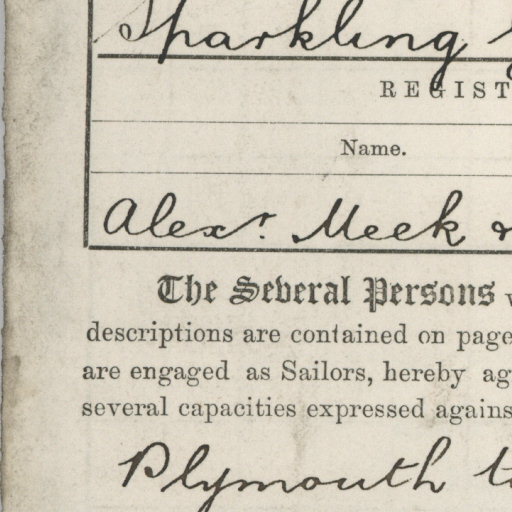 Sparkling
REGIST
Name.
Alexr. Meek &
The Several Persons
descriptions are contained on page
are engaged as Sailors, hereby ag
several capacities expressed agains
Plymouth to